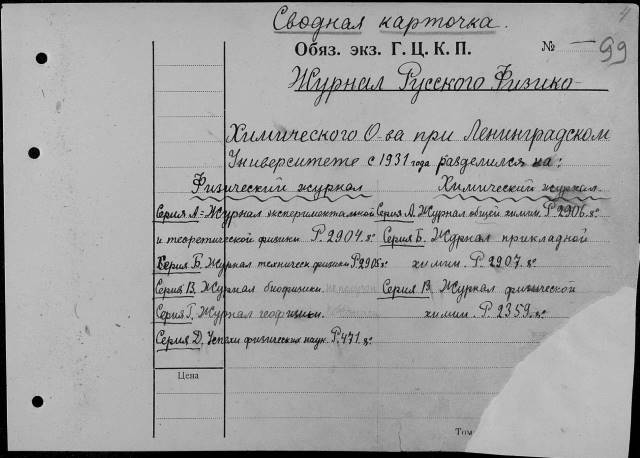 4
Сводная карточка.
Обяз. экз. Г. Ц. К. П. № — 99
Журнал Русского Физико-
Химического О-ва при Ленинградском
Университете с 1931 года разделился на:
Физический журнал Химический журнал.
Серия А - Журнал экспериментальной Серия А. Журнал общей химии. Р 2906.
и теоретической физики Р. 2904. Серия Б. Журнал прикладной
Серия Б. Журнал техническ физики Р. 2905 химии. Р. 2907.
Серия В. Журнал биофизики. Серия В Журнал физической
Серия Г. Журнал геофизики. химии. Р. 2359.
Серия Д. Успехи физических наук. Р. 471.
Цена
Том